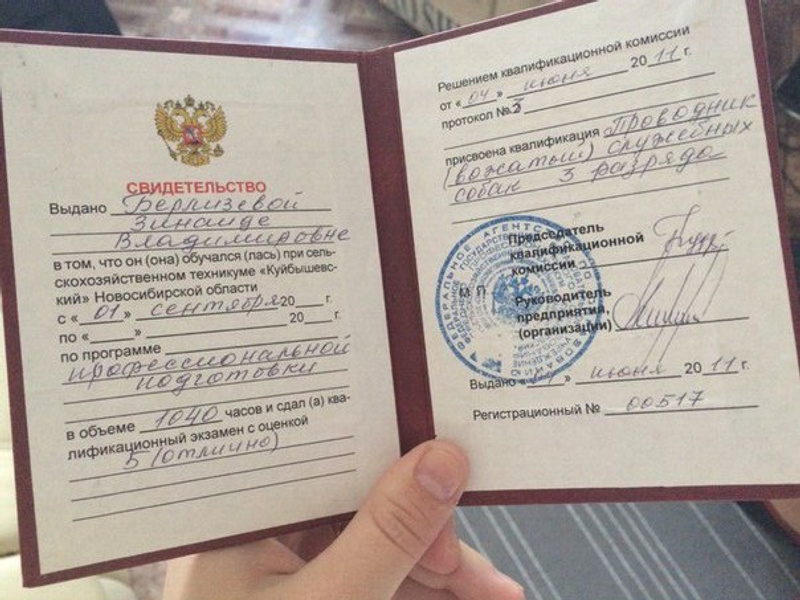 СВИДЕТЕЛЬСТВО
Выдано Берлизевой
Зинаиде
Владимировне
в том, что он (она) обучался (лась) при сель-
скохозяйственном техникуме «Куйбышевс-
кий» Новосибирской области
с «01» сентября 20 г.
по « » 20 г.
по программе
профессиональной
подготовки
в объеме 1040 часов и сдал (а) ква-
лификационный экзамен с оценкой
5 (отлично)
Решением квалификационной комиссии
от «04» июня 2011 г.
протокол №3
присвоена квалификация Проводник
(вожатый) служебных
собак 3 разряда
Председатель
квалификационной
комиссии
М П
Руководитель
предприятия,
(организации)
Выдано « » июня 2011 г.
Регистрационный № 00517